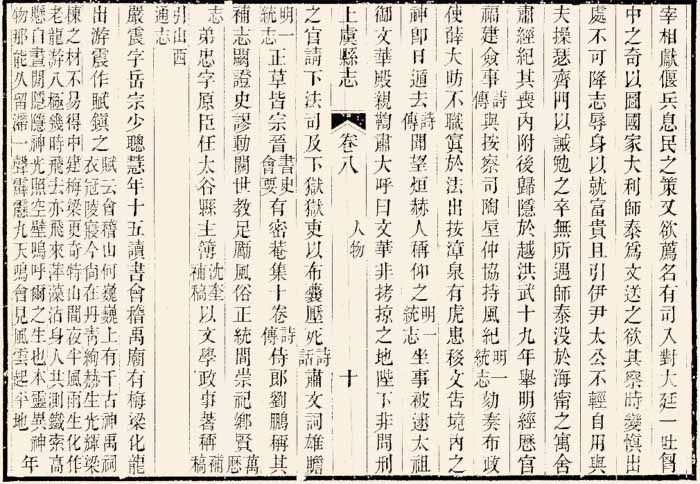 宰相獻偃兵息民之策又欲薦名有司入對大廷一吐胷
中之奇以圖國家大利師泰爲文送之欲其察時變慎出
處不可降志辱身以就富貴且引伊尹太公不輕自用與
夫操瑟齊門以誡勉之卒無所遇師泰没於海甯之寓舍
肅經紀其喪內附後歸隱於越洪武十九年舉明經歷官
福建僉事詩傳與按察司陶垕仲協持風紀明一統志劾奏布政
使薛大昉不職寘於法出按漳泉有虎患移文告境內之
神卽日遁去詩傳聞望烜赫人稱仰之明一統志坐事被逮太祖
御文華殿親鞫肅大呼曰文華非拷掠之地陛下非問刑
上虞縣志 卷八 人物 十
之官請下法司及下獄獄吏以布囊壓死詩話肅文詞雄贍
明一統志正草皆宗晉書史會要有密菴集十卷詩傳侍郎劉鵬稱其
補志闕證史謬動關世教足勵風俗正統間崇祀鄉賢萬厯
志弟忠字原臣任太谷縣主簿沈奎補稿以文學政事著稱補稿
引山西通志
嚴震字岳宗少聰慧年十五讀書會稽禹廟有梅梁化龍
出游震作賦鎭之賦云會稽山何巍巍上有千古神禹祠
衣冠陵寢今尙在丹靑絢赫生光輝梁
棟之材不易得中建梅梁更奇特山間夜半風雨生化作
老龍游八極幾時飛去亦飛來萍藻沾身人共測鐵索高
懸白晝閒隱隱神光照空壁嗚呼爾之生也本靈異神
物那能久留滯一聲霹靂九天鳴會見風雲起平地年